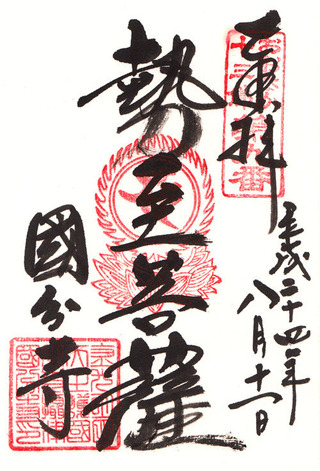 奉拝
平成二十四年
八月十一日
勢至菩薩
國分寺